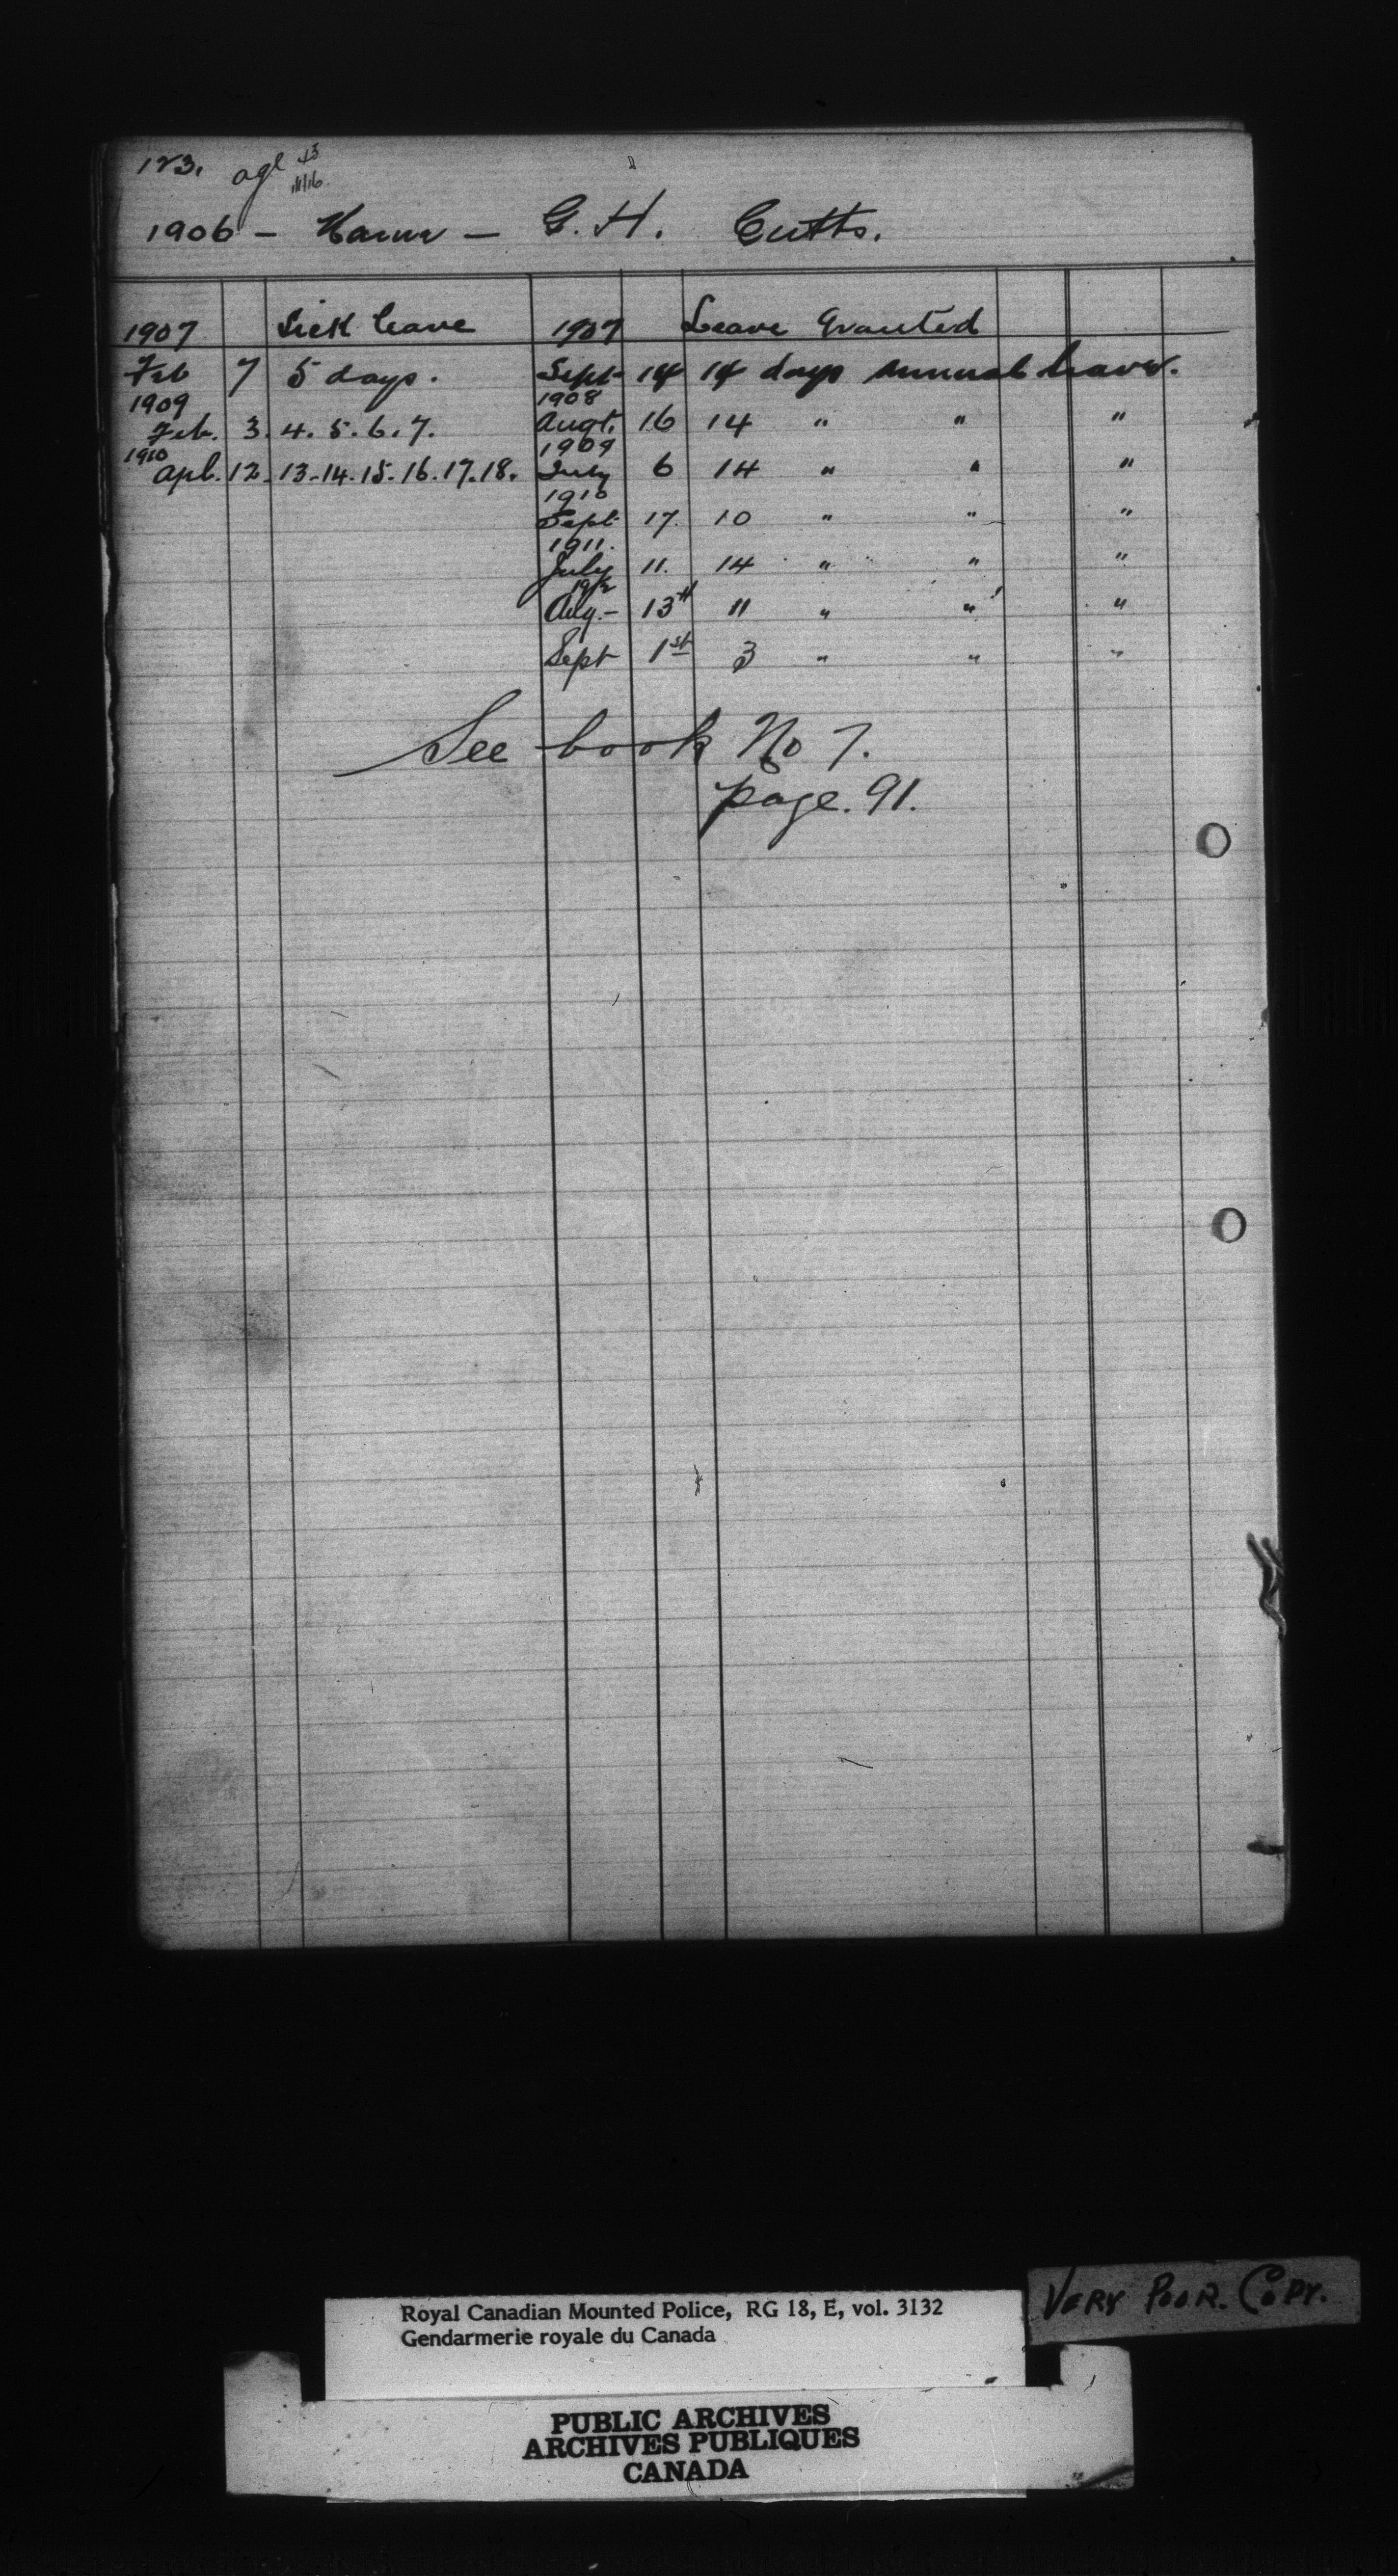 123. age 43
11/16.
1906 - Name - G. H. Cutts.
1907 Sick leave 1907 Leave Granted
Feb 7 5 days. Sept 14 14 days annual leave.
1909 1908
Feb. 3. 4. 5. 6. 7. Augt. 16 14 " " "
1910 1909
Apl. 12. 13-14-15-16.17.18. July 6 14 " " "
1910
Sept 17. 10 " " "
1911.
July 11. 14 " " "
1912
Aug.- 13th 11 " " "
Sept 1st 3 " " "
See book No 7.
page. 91.
Royal Canadian Mounted Police, RG 18, E, vol. 3132
Gendarmerie royale du Canada
VERY POOR. COPY.
PUBLIC ARCHIVES
ARCHIVES PUBLIQUES
CANADA